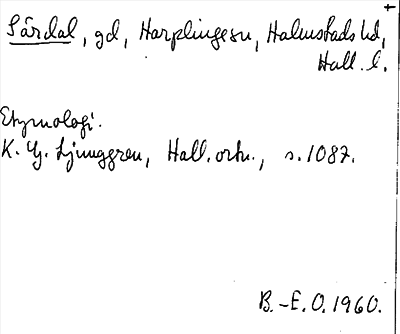 Särdal, gd, Harplinge sn, Halmstads hd,
Hall. l.
Etymologi.
K. G. Ljunggren, Hall. ortn., s. 1087.
B.-E. O. 1960.